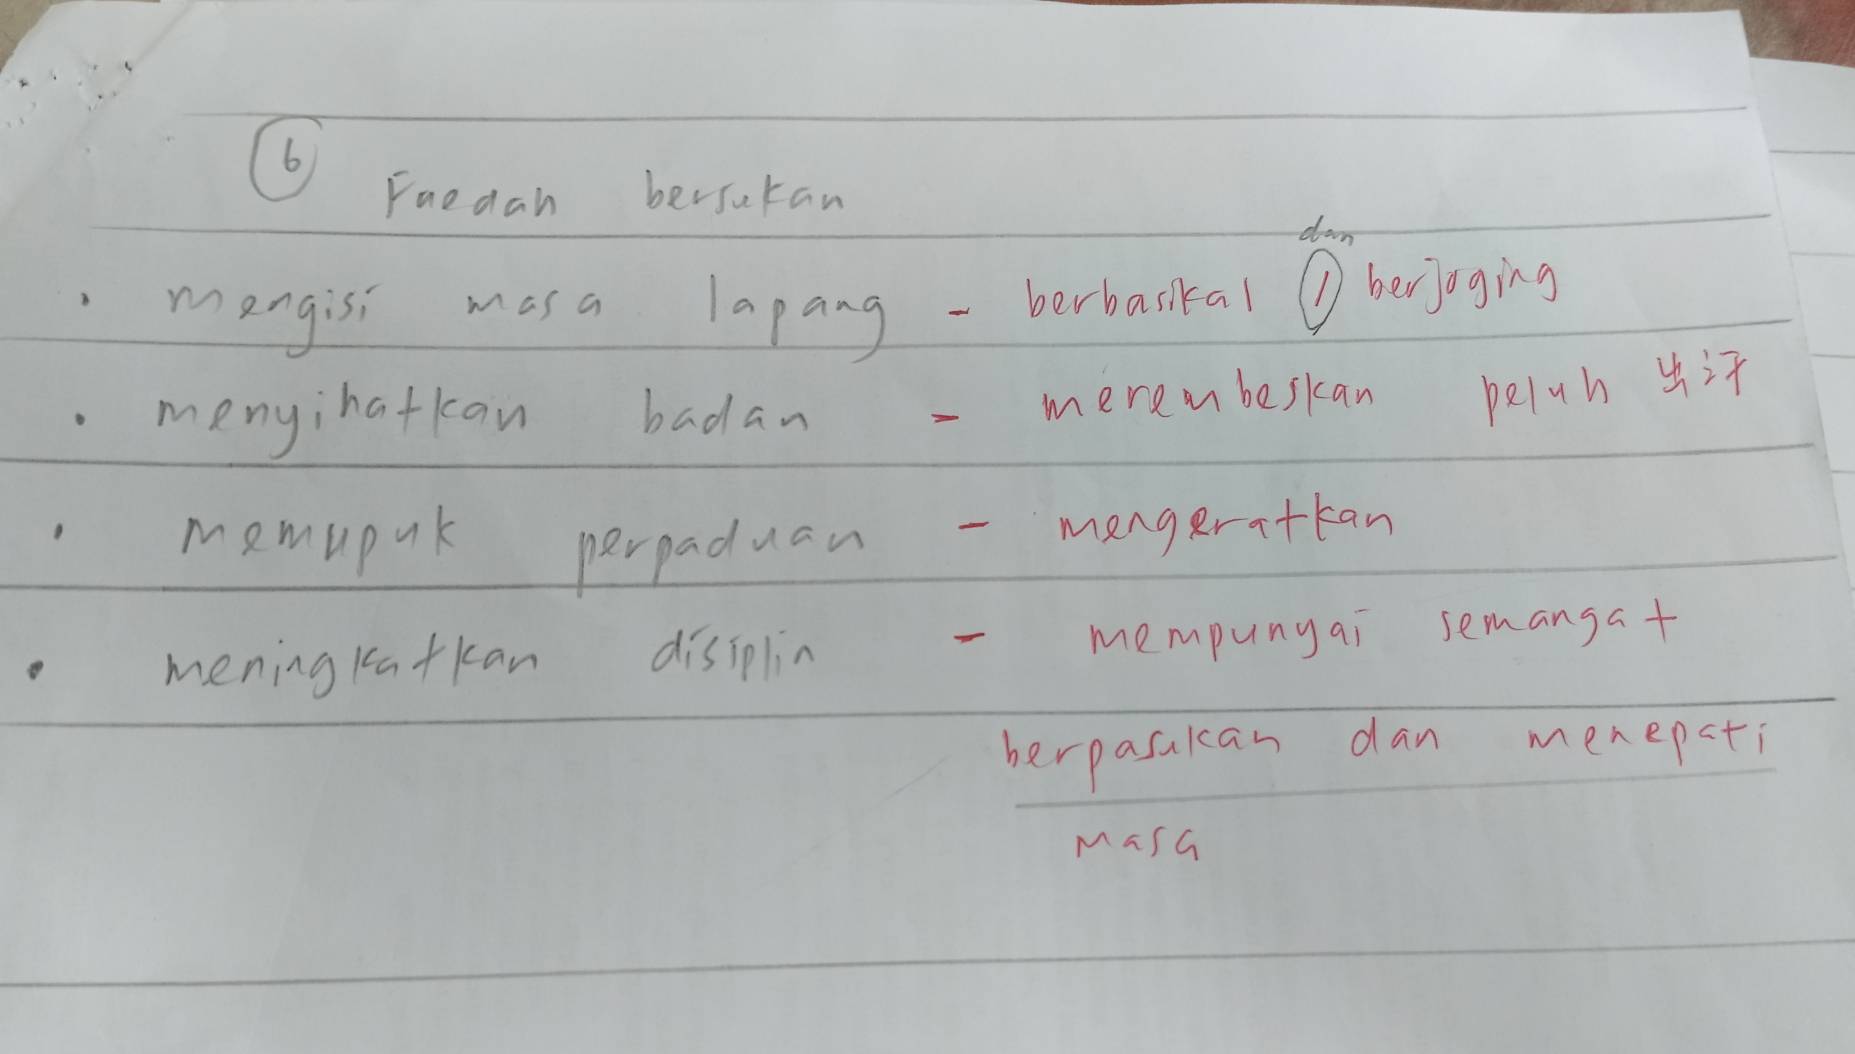 6
Faedah bersukan
dan
• mengisi masa lapang - berbasikal / berjoging
• menyihatkan badan - merembeskan peluh 出汗
• memupuk perpaduan - mengeratkan
• meningkatkan disiplin - mempunyai semangat
berpasukan dan menepati
masa